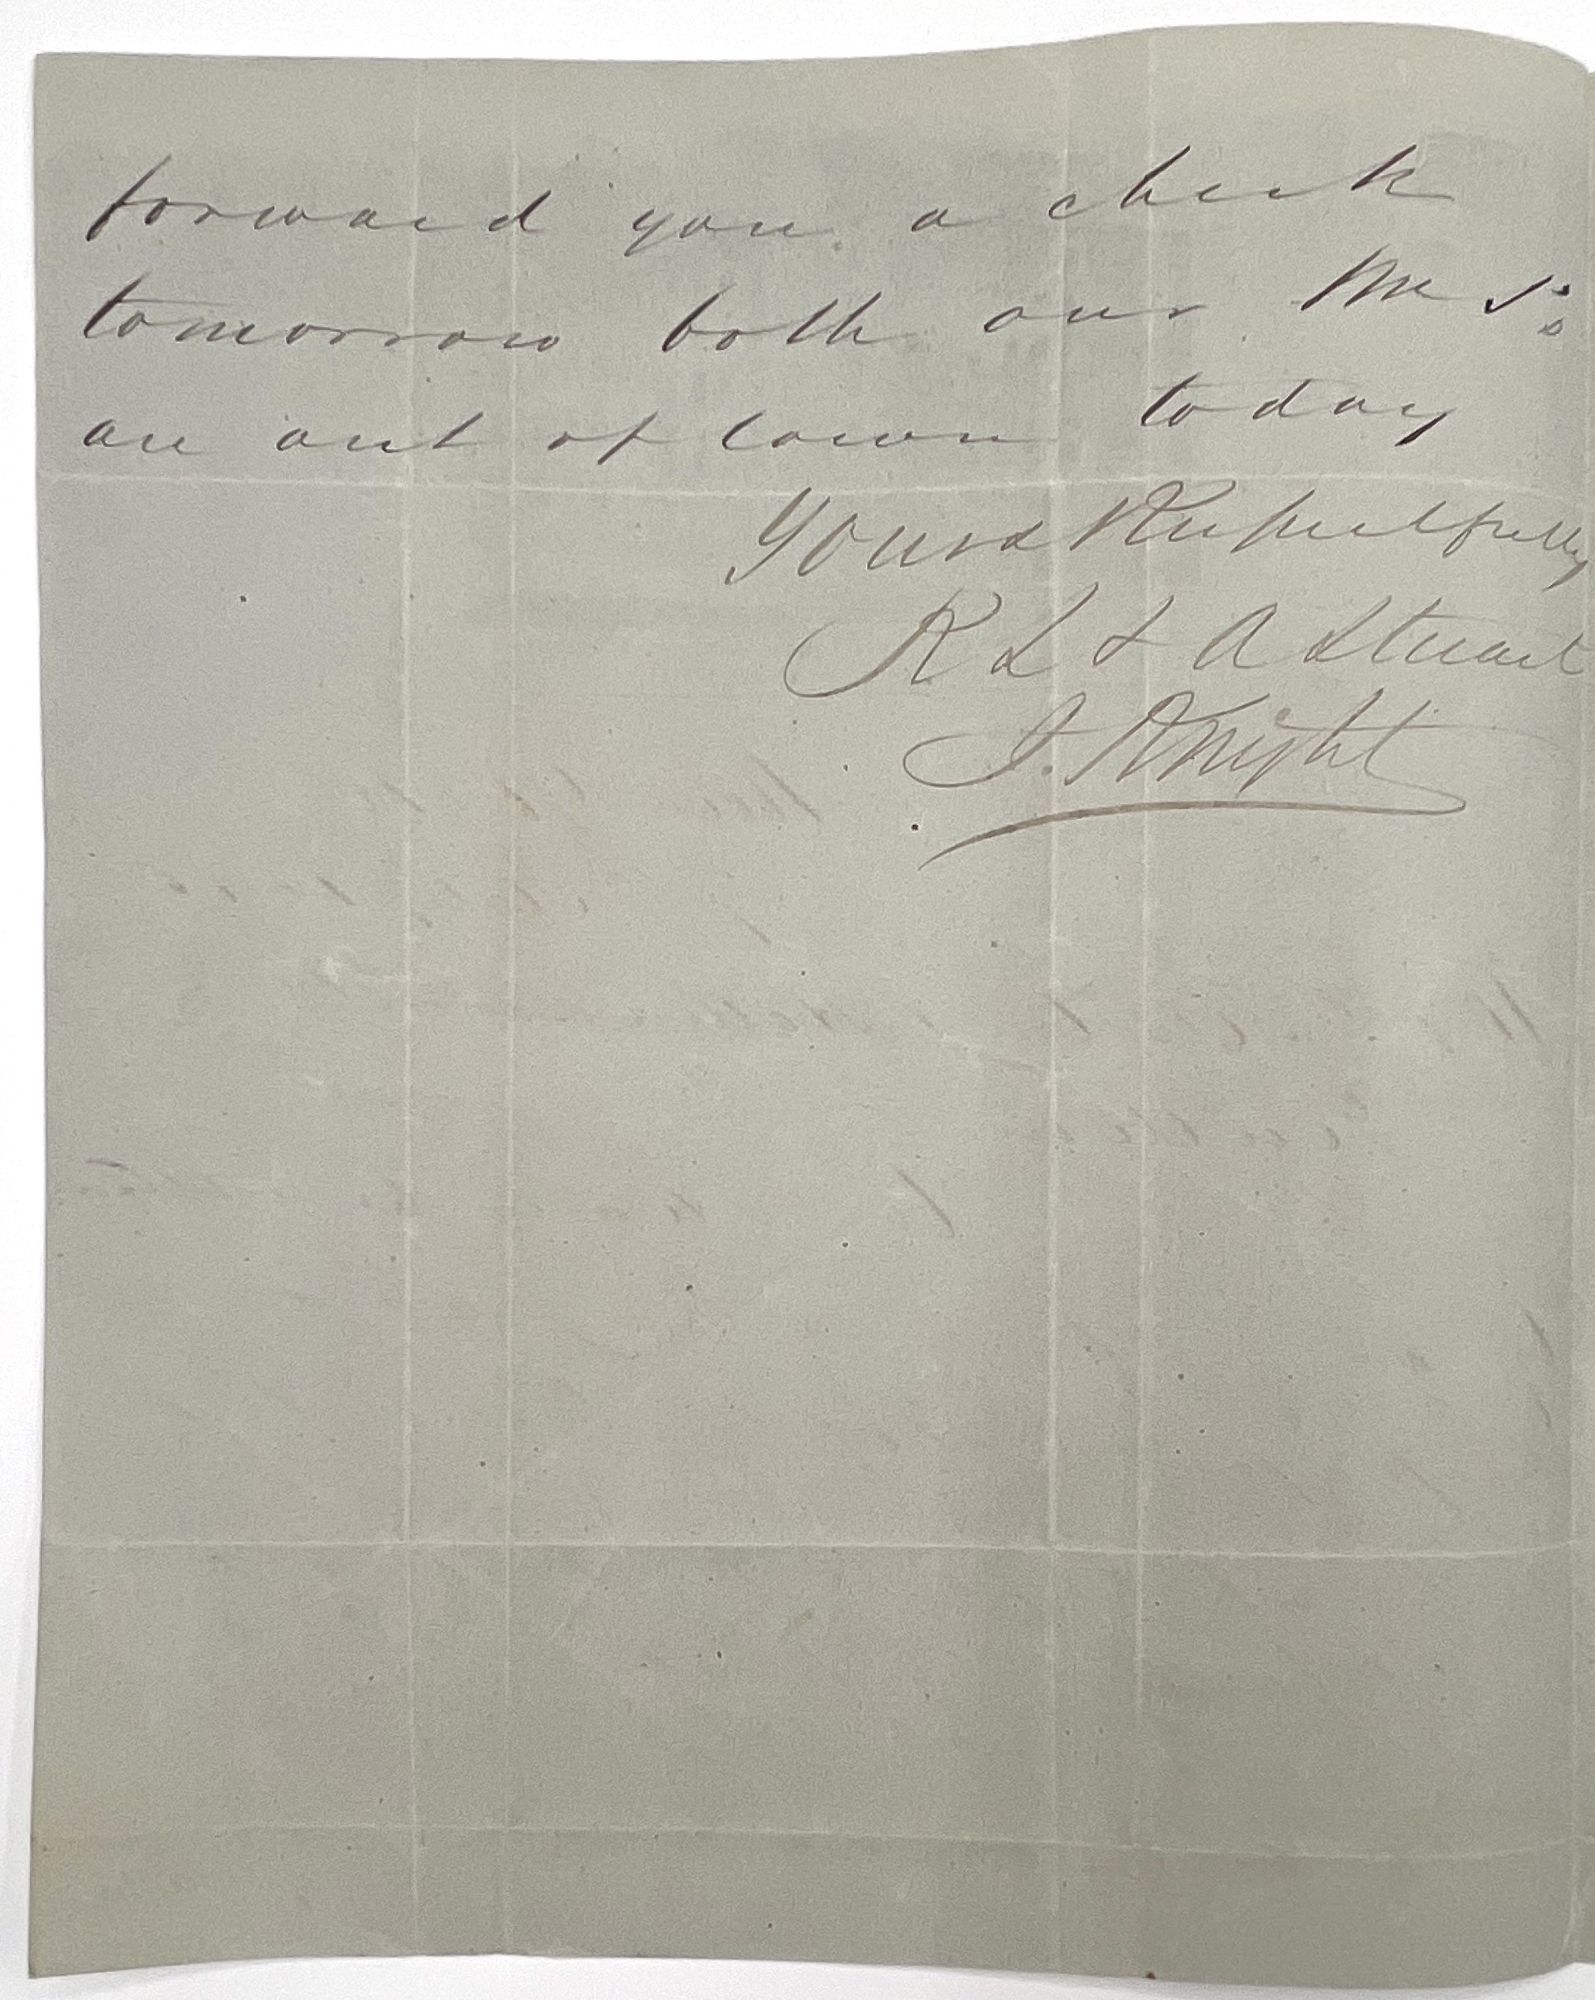 forward you a check
tomorrow both our Mr S:s
are out of town today
Yours Respectfully
R L & A Stuart
J. Knight